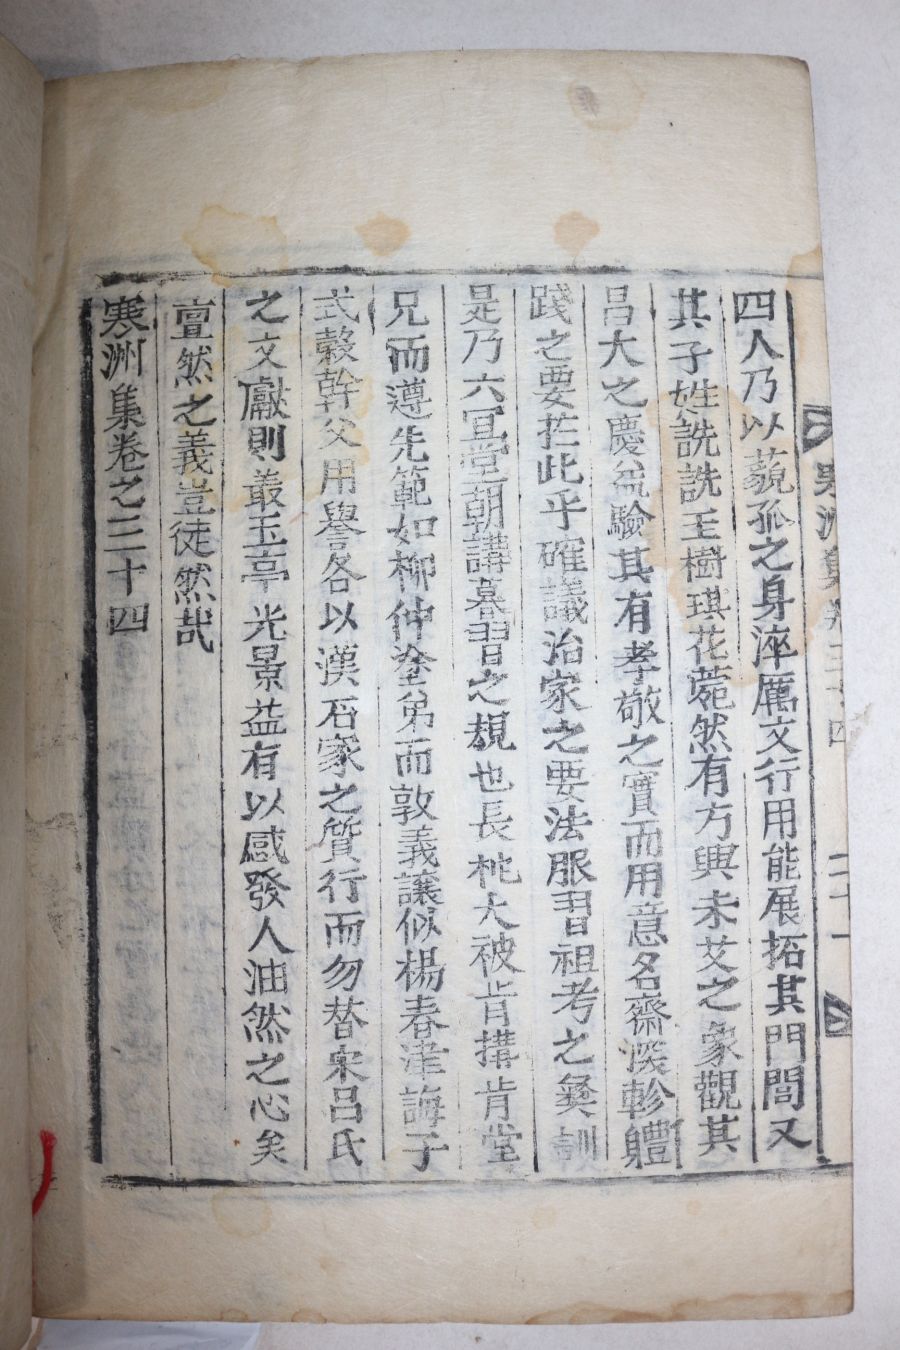 四人乃以藐孤之身淬厲文行用能展拓其門閭又
其子姓詵詵玉樹琪花菀然有方興未艾之象觀其
呂大之慶益驗其有孝敬之實而用意名齋深軫體
踐之要在此乎確議治家之要法服習祖考之彝訓
是乃六宜堂朝講暮習之規也長枕大被肯搆肯堂
兄而遵先範如柳仲塗弟而敦義讓似楊春津誨子
式糓幹父用譽各以漢石家之質行而勿替宋呂氏
之文獻則叢玉亭光景益有以感發人油然之心矣
亶然之義豈徒然哉
寒洲集卷之三十四
寒洲集卷三十四 二十一